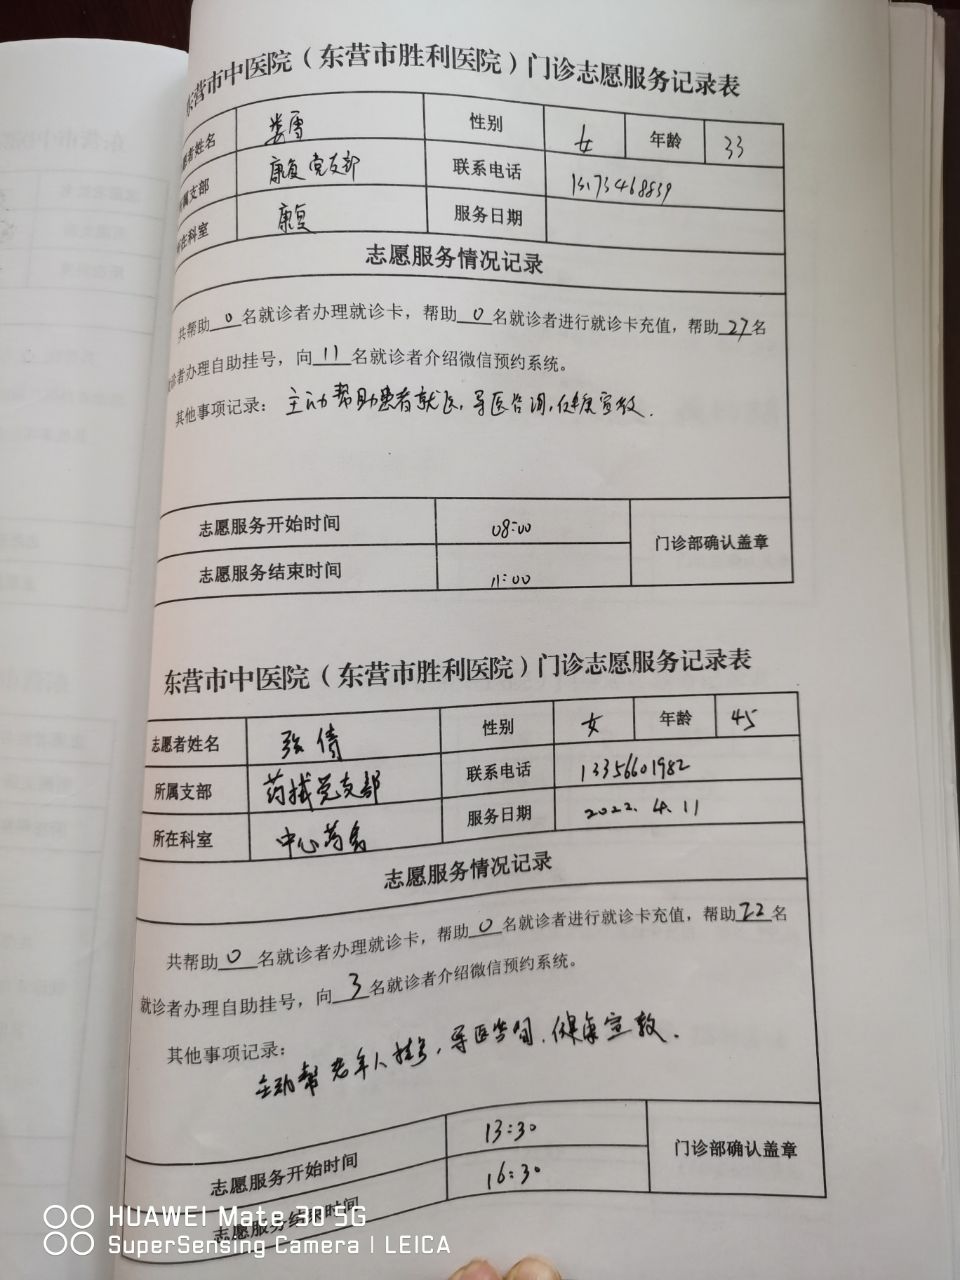 东营市中医院（东营市胜利医院）门诊志愿服务记录表
愿者姓名 娄雪 性别 女 年龄 33
所属支部 康复党支部 联系电话 15173468839
所在科室 康复 服务日期
志愿服务情况记录
共帮助0名就诊者办理就诊卡，帮助0名就诊者进行就诊卡充值，帮助27名
就诊者办理自助挂号，向11名就诊者介绍微信预约系统。
其他事项记录：主动帮助患者就医，导医咨询，健康宣教.
志愿服务开始时间 08:00
门诊部确认盖章
志愿服务结束时间 11:00
东营市中医院（东营市胜利医院）门诊志愿服务记录表
志愿者姓名 张倩 性别 女 年龄 45
所属支部 药械党支部 联系电话 13356601982
所在科室 中心药房 服务日期 2022.4.11
志愿服务情况记录
共帮助0名就诊者办理就诊卡，帮助0名就诊者进行就诊卡充值，帮助22名
就诊者办理自助挂号，向3名就诊者介绍微信预约系统。
其他事项记录：
主动帮老年人挂号，导医咨询，健康宣教.
志愿服务开始时间 13:30
门诊部确认盖章
志愿服务结束时间 16:30
HUAWEI Mate 30 5G
SuperSensing Camera | LEICA